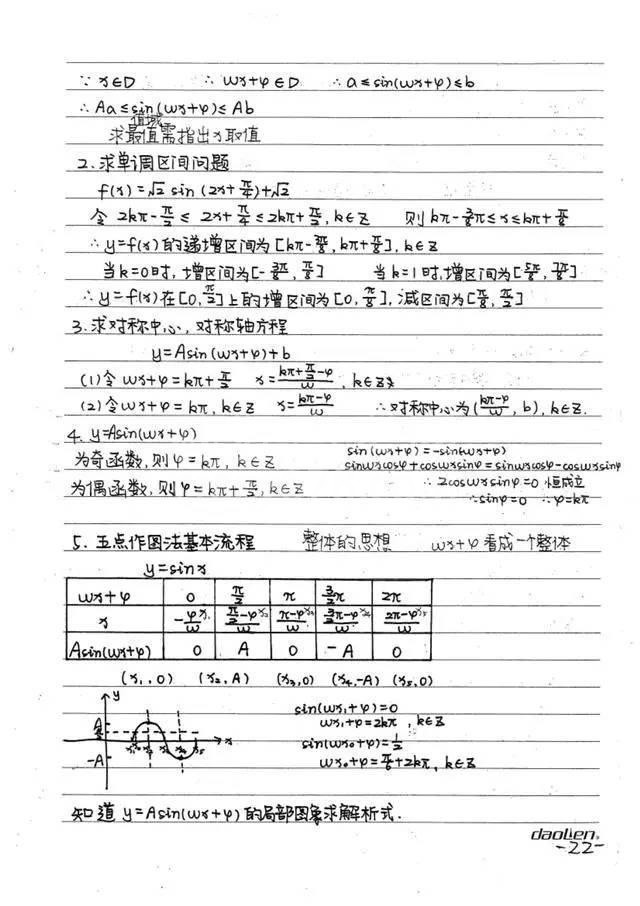 ∵ x∈D ∴ ωx+φ∈D ∴ a≤sin(ωx+φ)≤b
∴ Aa≤sin(ωx+φ)≤Ab
值域
求最值需指出x取值
2.求单调区间问题
f(x)=√2 sin(2x+π/4)+√2
令 2kπ-π/2≤2x+π/4≤2kπ+π/2, k∈Z 则 kπ-3/8π≤x≤kπ+π/8
∴ y=f(x)的递增区间为[kπ-3π/8, kπ+π/8], k∈Z
当k=0时,增区间为[-3π/8, π/8] 当k=1时,增区间为[5π/8, 9π/8]
∴ y=f(x)在[0,π/2]上的增区间为[0,π/8],减区间为[π/8,π/2]
3.求对称中心,对称轴方程
y=Asin(ωx+φ)+b
(1)令ωx+φ=kπ+π/2 x=(kπ+π/2-φ)/ω, k∈Z
(2)令ωx+φ=kπ, k∈Z x=(kπ-φ)/ω ∴对称中心为((kπ-φ)/ω, b), k∈Z.
4. y=Asin(ωx+φ)
为奇函数,则φ=kπ, k∈Z
sin(ωx+φ)=-sin(-ωx+φ)
sinωxcosφ+cosωxsinφ=sinωxcosφ-cosωxsinφ
为偶函数,则φ=kπ+π/2, k∈Z
∴2cosωxsinφ=0 恒成立
∴sinφ=0 ∴φ=kπ
5.五点作图法基本流程 整体的思想 ωx+φ看成一个整体
y=sinx
ωx+φ 0 π/2 π 3/2π 2π
x -φ/ω x₁ (π/2-φ)/ω x₂ (π-φ)/ω x₃ (3/2π-φ)/ω x₄ (2π-φ)/ω x₅
Asin(ωx+φ) 0 A 0 -A 0
(x₁,0) (x₂,A) (x₃,0) (x₄,-A) (x₅,0)
y
A
x₁ x₂ x₃ x₄ x₅ x
-A
sin(ωx₁+φ)=0
ωx₁+φ=2kπ, k∈Z
sin(ωx₀+φ)=1/2
ωx₀+φ=π/6+2kπ, k∈Z
知道y=Asin(ωx+φ)的局部图象求解析式.
daolien
-22-